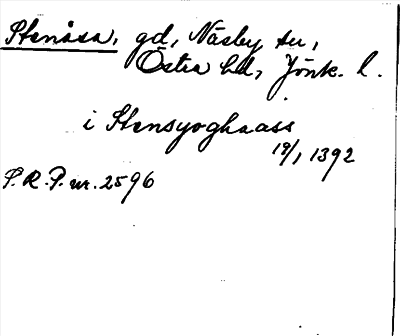 Stenåsa, gd, Näsby sn,
Östra hd, Jönk. l.
i Stensyoghaass
19/1 1392
S.R.P. nr. 2596